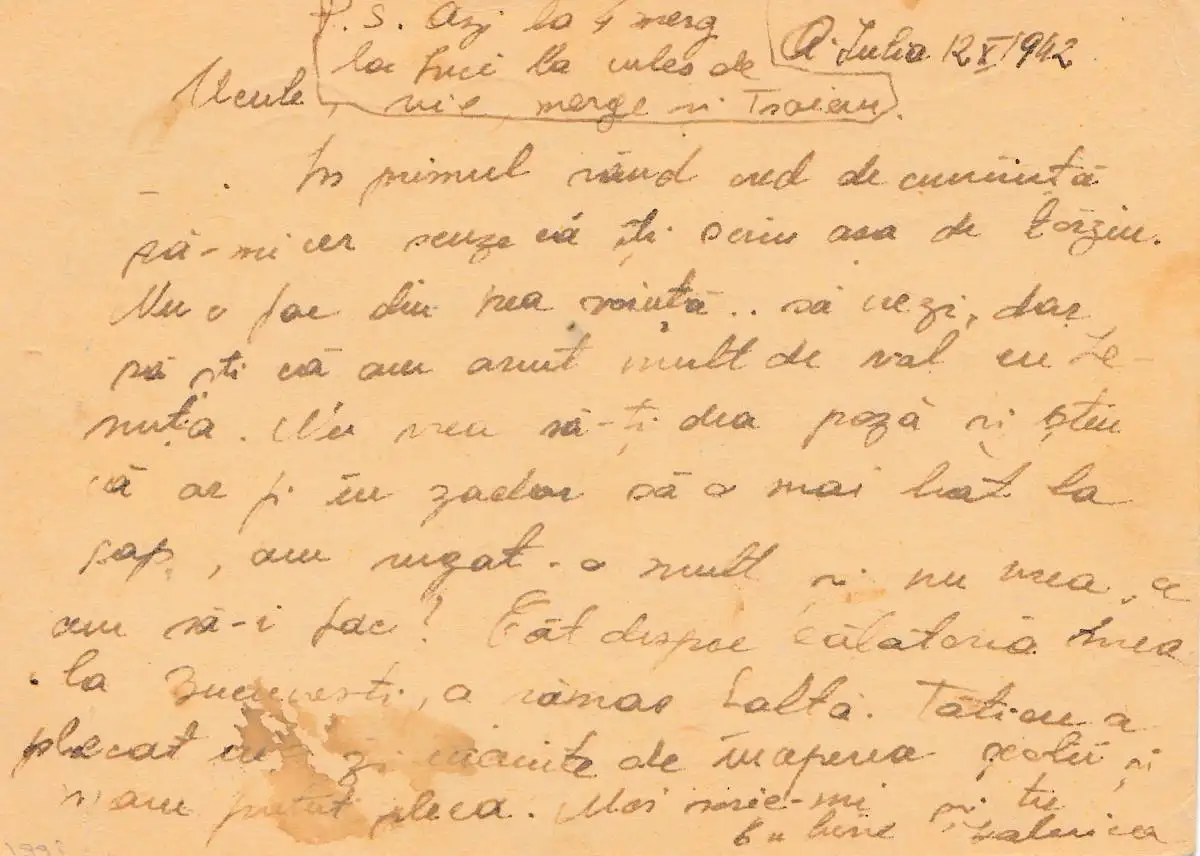 P.S. Azi la 4 merg
la Luci la cules de
vie, merge și Traian.
A. Iulia 12 X 1942
Ucule,
În primul rând cred de cuviință
să-mi cer scuze că îți scriu așa de târziu.
Nu o fac din rea voință.. să vezi, dar
să știi că am avut mult de val cu Le-
nuța. Nu vrea să-ți dea poză și știu
că ar fi în zadar să o mai bat la
cap, am rugat-o mult și nu vrea, ce
am să-i fac! Cât despre călătoria mea
la București, a rămas baltă. Tăticu a
plecat cu o zi înainte de începerea școlii și
n'am putut pleca. Mai scrie-mi și tu
cu bine